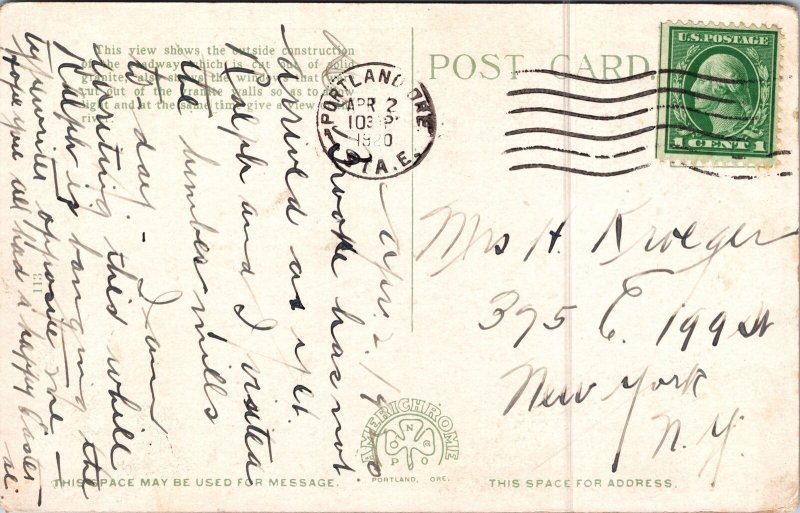 This view shows the outside construction
of the roadway which is cut out of solid
granite also shows the windows that
cut out of the granite walls so as to
light and at the same time give a view
river
POST CARD
U.S. POSTAGE
1 CENT 1
PORTLAND, ORE.
APR 2
1030P
1920
STA.E.
Apr. 2. 1920
Brooke has not
Arrived as yet.
Ralph and I visited
the lumber mills
to-day. - I am
writing this while
Ralph is banging the
typewriter opposite me -
hope you all had a happy Easter -
al.
113
Mrs H. Kroeger
375 E. 199 st
New York
N.Y.
AMERICHROME
P N C O
PORTLAND, ORE.
THIS SPACE MAY BE USED FOR MESSAGE.
THIS SPACE FOR ADDRESS.